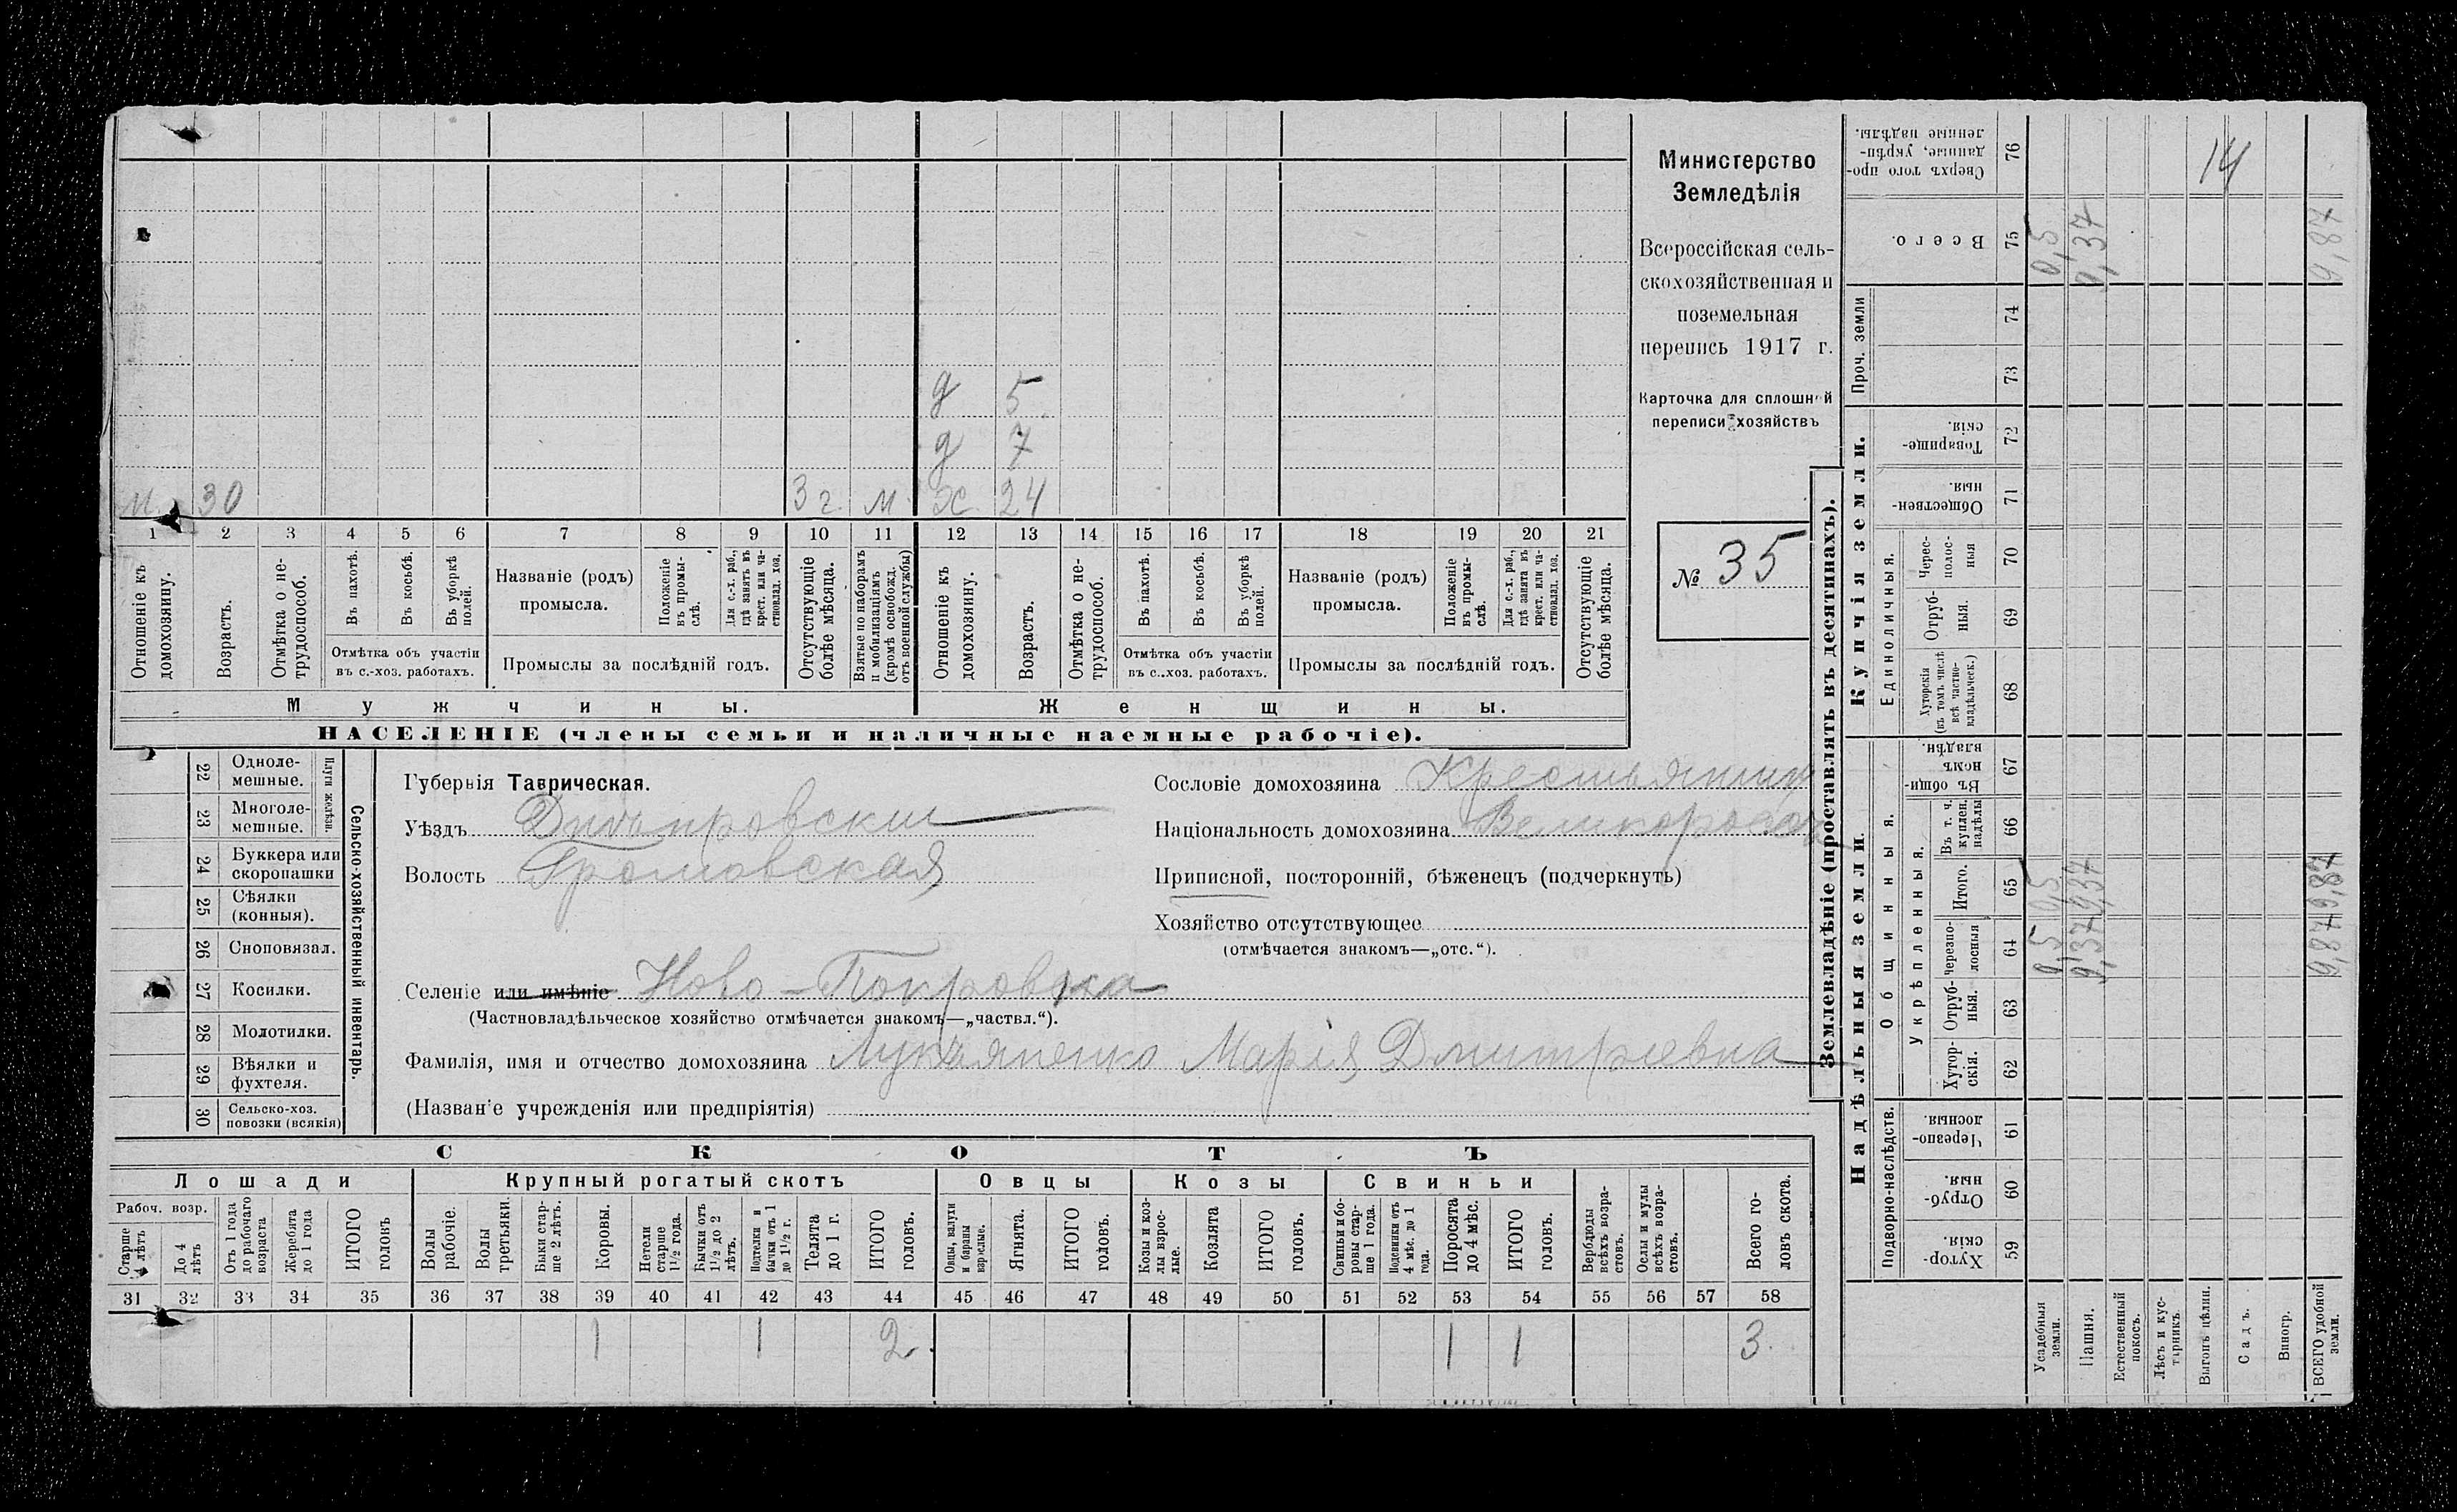 д 5
д 7
м. 30 3 г. м. ж. 24
1 2 3 4 5 6 7 8 9 10 11 12 13 14 15 16 17 18 19 20 21
Отношеніе къ домохозяину.
Возрастъ.
Отмѣтка о нетрудоспособ.
Въ пахотѣ.
Въ косьбѣ.
Въ уборкѣ полей.
Отмѣтка объ участіи
въ с.-хоз. работахъ.
Названіе (родъ)
промысла.
Положеніе въ промыслѣ.
Для с.-х. раб., гдѣ занятъ въ крест. или частновлад. хоз.
Промыслы за послѣдній годъ.
Отсутствующіе болѣе мѣсяца.
Взятые по наборамъ и мобилизаціямъ (кромѣ освобожд. отъ военной службы)
Отношеніе къ домохозяину.
Возрастъ.
Отмѣтка о нетрудоспособ.
Въ пахотѣ.
Въ косьбѣ.
Въ уборкѣ полей.
Отмѣтка объ участіи
въ с..хоз. работахъ.
Названіе (родъ)
промысла.
Положеніе въ промыслѣ.
Для с.-х. раб., гдѣ занята въ крест. или частновлад. хоз.
Промыслы за послѣдній годъ.
Отсутствующіе болѣе мѣсяца.
Мужчины. Женщины.
НАСЕЛЕНІЕ (члены семьи и наличные наемные рабочіе).
Министерство
Земледѣлія
Всероссійская сель-
скохозяйственная и
поземельная
перепись 1917 г.
Карточка для сплошной
переписи хозяйствъ
№ 35
22 Одноле-
мешные.
23 Многоле-
мешные.
Плуги желѣзн.
24 Буккера или
скоропашки
25 Сѣялки
(конныя).
26 Сноповязал.
27 Косилки.
28 Молотилки.
29 Вѣялки и
фухтеля.
30 Сельско-хоз.
повозки (всякія)
Сельско-хозяйственный инвентарь.
Губернія Таврическая.
Уѣздъ Днѣпровскій
Волость Громовская
Сословіе домохозяина Крестьянин
Національность домохозяина Великоросс
Приписной, посторонній, бѣженецъ (подчеркнуть)
Хозяйство отсутствующее
(отмѣчается знакомъ—„отс.“).
Селеніе или имѣніе Ново-Покровка
(Частновладѣльческое хозяйство отмѣчается знакомъ—„частвл.“).
Фамилія, имя и отчество домохозяина Лукьяненко Марія Дмитріевна
(Названіе учрежденія или предпріятія)
СКОТЪ
Лошади Крупный рогатый скотъ Овцы Козы Свиньи
Рабоч. возр.
Старше 4 лѣтъ
До 4 лѣтъ
Отъ 1 года до рабочаго возраста
Жеребята до 1 года
ИТОГО головъ
Волы рабочіе.
Волы третьяки.
Быки старше 2 лѣтъ.
Коровы.
Нетели старше 1½ года.
Бычки отъ 1½ до 2 лѣтъ.
Подтелки и бычки отъ 1 до 1½ г.
Телята до 1 г.
ИТОГО головъ.
Овцы, валухи и бараны взрослые.
Ягнята.
ИТОГО головъ.
Козы и козлы взрослые.
Козлята
ИТОГО головъ.
Свиньи и боровы старше 1 года.
Подсвинки отъ 4 мѣс. до 1 года.
Поросята до 4 мѣс.
ИТОГО головъ.
Верблюды всѣхъ возрастовъ.
Ослы и мулы всѣхъ возрастовъ.
Всего головъ скота.
31 32 33 34 35 36 37 38 39 40 41 42 43 44 45 46 47 48 49 50 51 52 53 54 55 56 57 58
1 1 2 1 1 3
Землевладѣніе (проставлять въ десятинахъ).
Надѣльныя земли. Купчія земли. Проч. земли
Подворно-наслѣдств.
Общинныя.
Укрѣпленныя.
Единоличныя.
Хуторскія. 59
Отрубныя. 60
Черезполосныя. 61
Хуторскія. 62
Отрубныя. 63
Черезполосныя 64
Итого. 65
Въ т. ч. куплен. надѣлы 66
Въ общинномъ владѣн. 67
Хуторскія (въ томъ числѣ всѣ частновладѣльческ.) 68
Отрубныя. 69
Чересполосныя 70
Общественныя. 71
Товарищескія. 72
73
74
Всего. 75
Сверхъ того проданные, укрѣпленные надѣлы. 76
Усадебныя земли. 0,5 0,5 0,5
Пашня. 9,37 9,37 9,37
Естественный покосъ.
Лѣсъ и кустарникъ.
Выгонъ цѣлин.
Садъ.
Виногр.
ВСЕГО удобной земли. 9,87 9,87 9,87
14